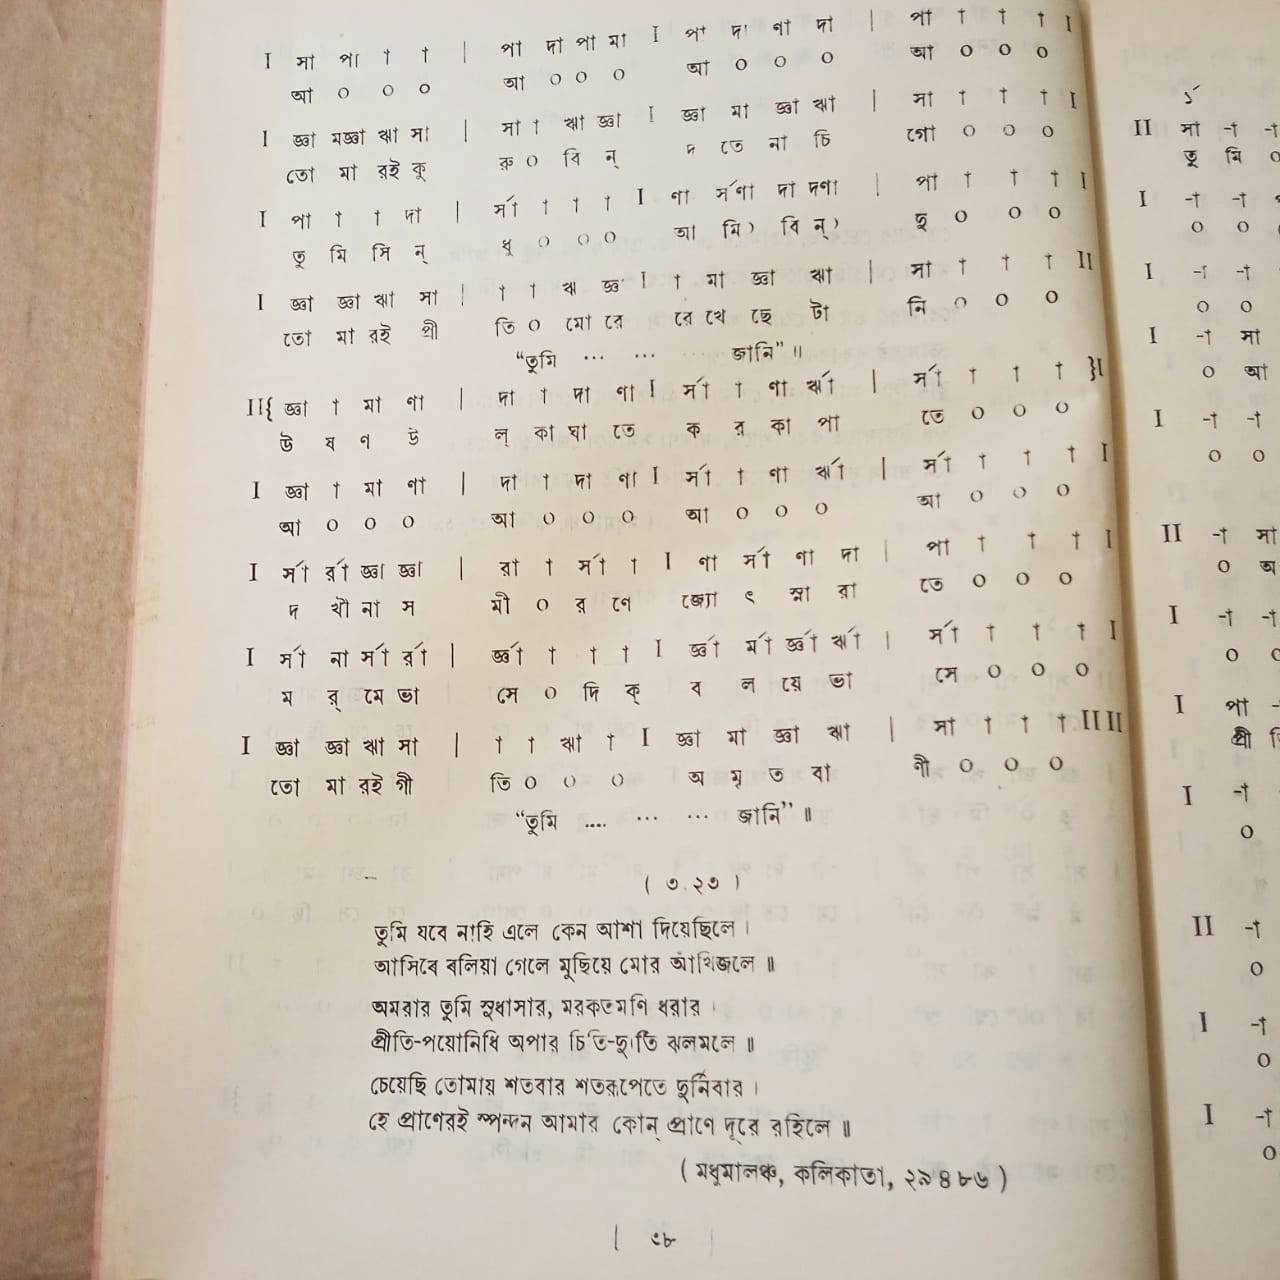 I মা পা † † | পা দা পা মা I পা দা ণা দা | পা † † † I
আ ০ ০ ০ আ ০ ০ ০ আ ০ ০ ০ আ ০ ০ ০
I জ্ঞা মজ্ঞা ঋা সা | সা † ঋা জ্ঞা I জ্ঞা মা জ্ঞা ঋা | সা † † † I
তো মা রই কু রু ০ বি ন্ দ তে না চি গো ০ ০ ০
I পা † † দা | র্সা † † † I ণা র্সণা দা দণা | পা † † † I
তু মি সি ন্ ধু ০ ০ ০ আ মি) বি ন্) দু ০ ০ ০
I জ্ঞা জ্ঞা ঋা সা | † † ঋ জ্ঞ I † মা জ্ঞা ঋা | সা † † † II
তো মা রই প্রী তি ০ মো রে রে খে ছে টা নি ০ ০ ০
“তুমি ... ... জানি” ॥
II{ জ্ঞা † মা ণা | দা † দা ণা I র্সা † ণা র্ঋা | র্সা † † † }I
উ ষ ণ উ ল্ কা ঘা তে ক র কা পা তে ০ ০ ০
I জ্ঞা † মা ণা | দা † দা ণা I র্সা † ণা র্ঋা | র্সা † † † I
আ ০ ০ ০ আ ০ ০ ০ আ ০ ০ ০ আ ০ ০ ০
I র্সা র্রা জ্ঞা জ্ঞা | রা † র্সা † I ণা র্সা ণা দা | পা † † † I
দ খী না স মী ০ র ণে জ্যো ৎ স্না রা তে ০ ০ ০
I র্সা না র্সা র্রা | র্জ্ঞা † † † I র্জ্ঞা র্মা র্জ্ঞা র্ঋা | র্সা † † † I
ম র্ মে ভা সে ০ দি ক্ ব ল য়ে ভা সে ০ ০ ০
I জ্ঞা জ্ঞা ঋা সা | † † ঋা † I জ্ঞা মা জ্ঞা ঋা | সা † † † II II
তো মা রই গী তি ০ ০ ০ অ মৃ ত বা ণী ০ ০ ০
“তুমি .... ... ... জানি” ॥
( ৩.২৩ )
তুমি যবে নাহি এলে কেন আশা দিয়েছিলে ।
আসিবে বলিয়া গেলে মুছিয়ে মোর আঁখিজলে ॥
অমরার তুমি সুধাসার, মরকতমণি ধরার ।
প্রীতি-পয়োনিধি অপার চিতি-দ্যুতি ঝলমলে ॥
চেয়েছি তোমায় শতবার শতরূপেতে দুর্নিবার ।
হে প্রাণেরই স্পন্দন আমার কোন্ প্রাণে দূরে রহিলে ॥
(মধুমালঞ্চ, কলিকাতা, ২৯৪৮৬)
II সা -† -†
তু মি ০
I -† -†
০ ০
I -† -†
০ ০
I -† মা
০ আ
I -† -†
০ ০
II -† মা
০ অ
I -† -†
০
I পা
প্রী
I -†
০
II -†
০
I -†
০
I -†
০